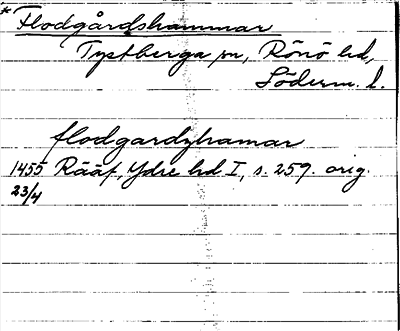 * Flodgårdshammar
Tystberga sn, Rönö hd,
Söderm. l.
flodgardzhamar
1455 Rääf, Ydre hd I, s. 259. orig.
23/4